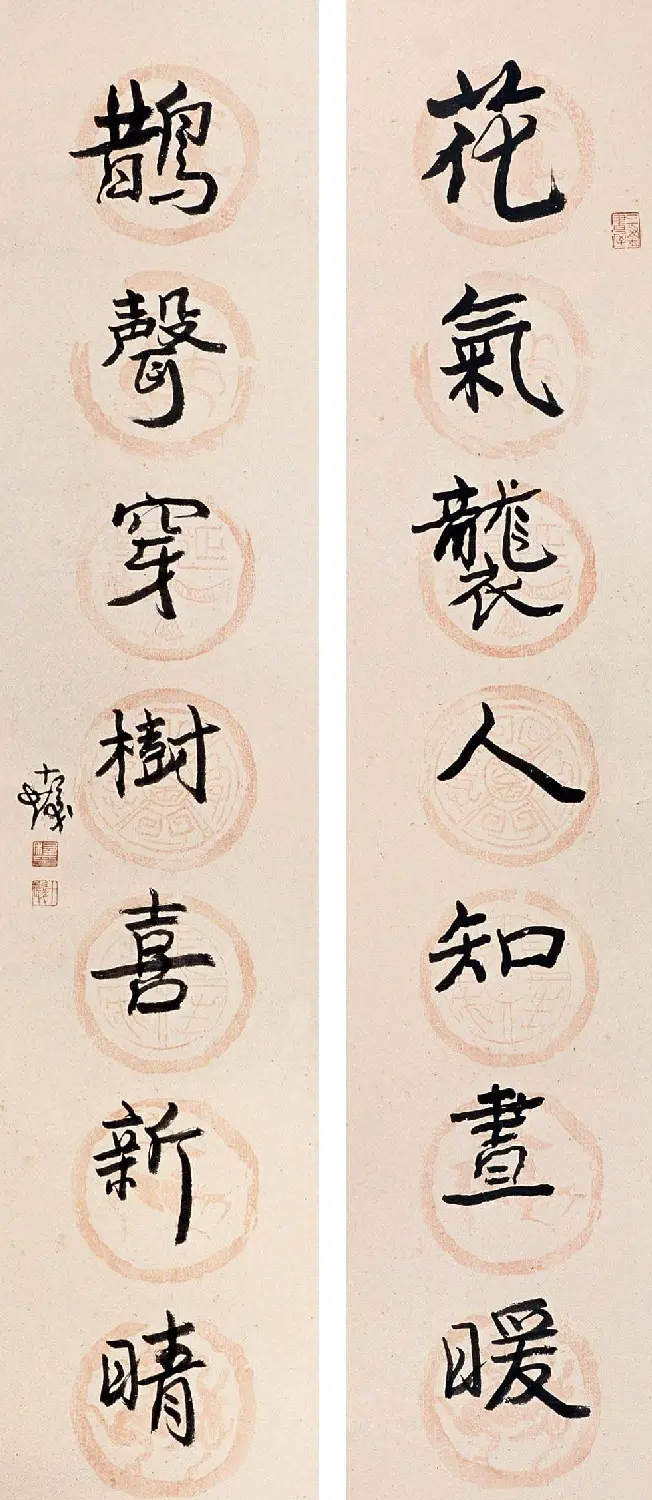 花氣襲人知晝暖
鵲聲穿樹喜新晴